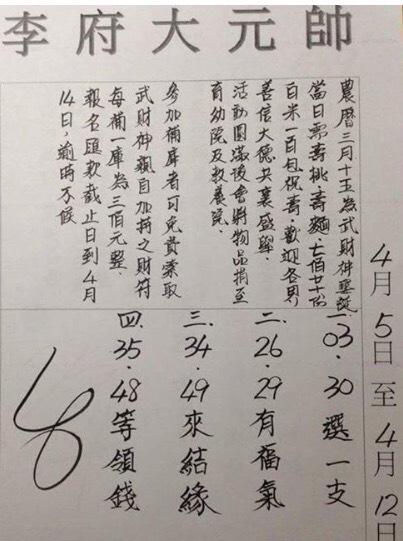 李府大元帥
農曆三月十五為武財神聖誕
當日需壽桃.壽麵.七佰廿份
百米一百包祝壽.歡迎各界
善信大德共襄盛舉.
活動圓滿後會將物品捐至
育幼院及教養院.
參加補庫者可免費索取
武財神親自加持之財符
每補一庫為三佰元整.
報名匯款截止日到4月
14日,逾時不候
4月5日至4月12日
一.03.30選一支
二.26.29有福氣
三.34.49來結緣
四.35.48等領錢